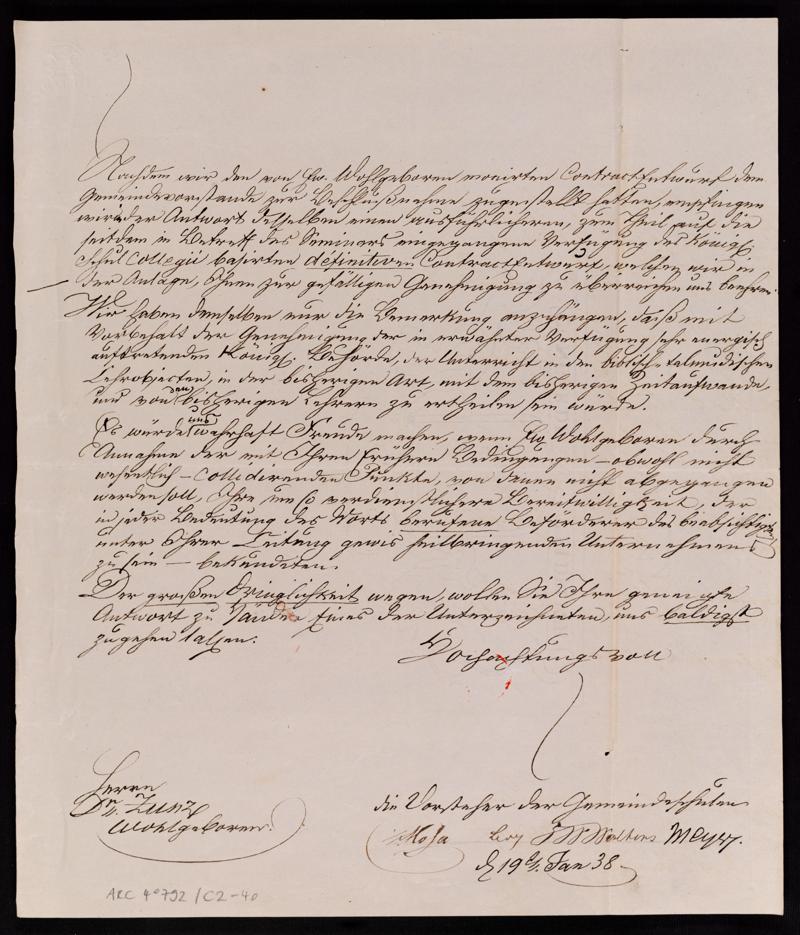 Nachdem wir den von Ew. Wohlgeboren monirten Contractentwurf dem
Gemeindevorstande zur Beschlußnahme zugestellt hatten, empfingen
wir in der Antwort desselben einen ausführlicheren, zum Theil auf die
seitdem in Betreff des Seminars eingegangene Verfügung des Königl.
Schul Collegii basirten definitiven Contractentwurf, welchen wir in
der Anlage, Ihnen zur gefälligen Genehmigung zu überreichen uns beehren.
Wir haben demselben nur die Bemerkung anzuhängen, daß mit
Vorbehalt der Genehmigung der in erwähnter Verfügung sehr energisch
auftretenden Königl. Behörde, der Unterricht in den biblisch-talmudischen
Lehrobjecten, in der bisherigen Art, mit dem bisherigen Zeitaufwande,
und von den bisherigen Lehrern zu ertheilen sein würde.
Es würde uns wahrhaft Freude machen, wenn Ew. Wohlgeboren durch
Annahme der mit Ihren früheren Bedingungen – obwohl nicht
wesentlich – collidirenden Punkte, von denen nicht abgegangen
werden soll, Ihre um so verdienstlichere Bereitwilligkeit, der
in jeder Bedeutung des Worts berufene Beförderer des beabsichtigten
unter Ihrer Leitung gewis heilbringenden Unternehmens
zu sein – bekundeten.
Der großen Dringlichkeit wegen, wollen Sie Ihre geneigte
Antwort zu Händen Eines der Unterzeichneten, uns baldigst
zugehen lassen.
Hochachtungsvoll
Herrn
Dr. Zunz
Wohlgeboren.
die Vorsteher der Gemeindeschulen
Wolters Meyer.
d 19t Jan 38
ARC 4° 792 / C2-40